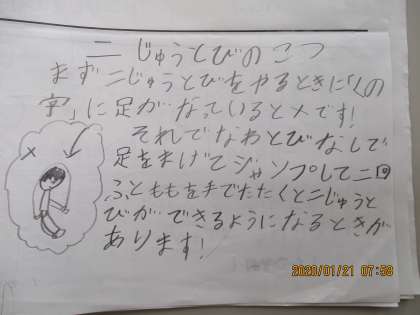 二じゅうとびのこつ
まず二じゅうとびをやるときに「くの
字」に足がなっているとメです!
それでなわとびなしで
足をまげてジャンプして二回
ふとももを手でたたくと二じゅうと
びができるようになるときが
あります!
×
2020/01/21 07:58